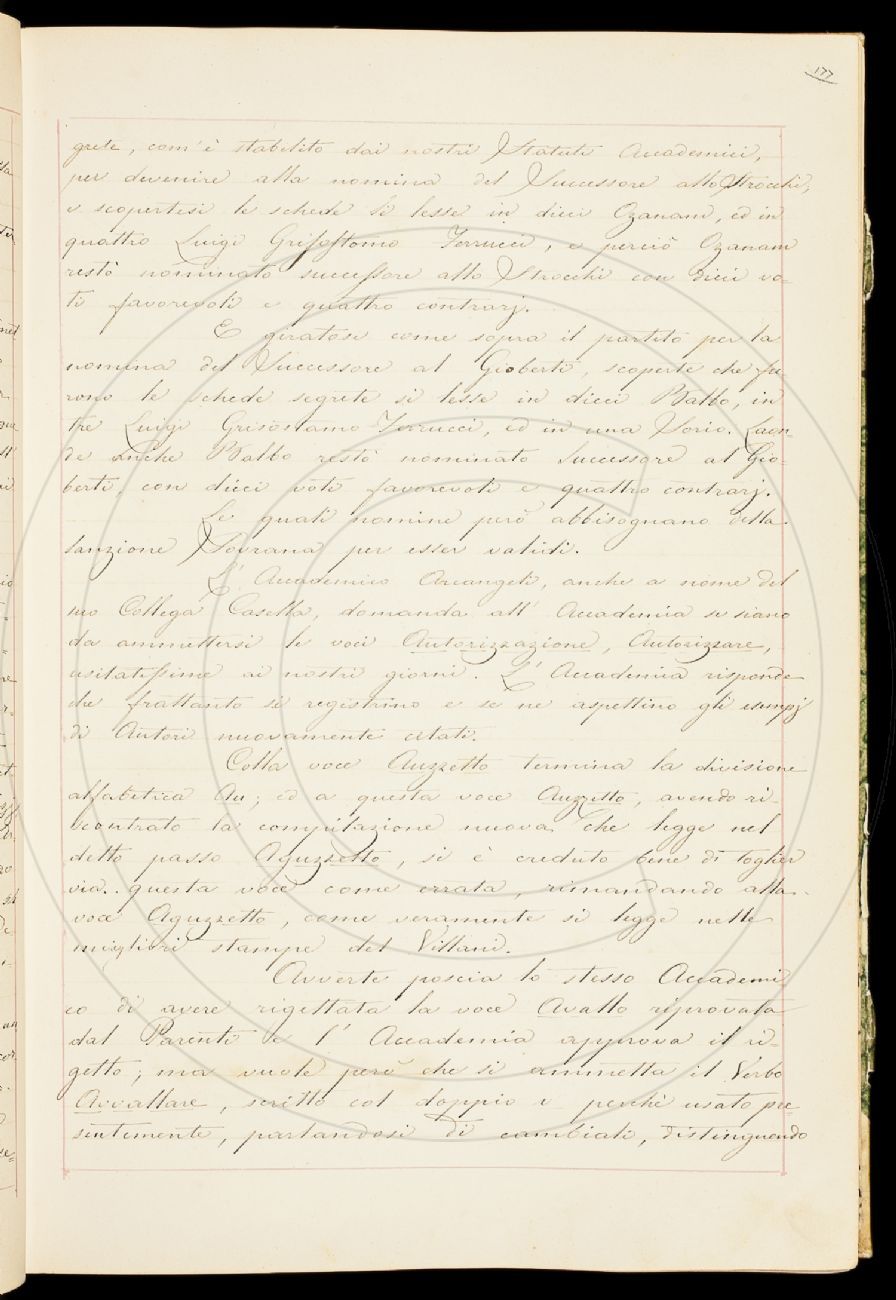 177
grete, com'è stabilito dai nostri Statuti Accademici,
per devenire alla nomina del Successore allo Strocchi,
e scopertesi le schede si lesse in dieci Ozanam, ed in
quattro Luigi Grisostomo Ferrucci, e perciò Ozanam
restò nominato successore allo Strocchi con dieci vo-
ti favorevoli e quattro contrarj.
E giratosi come sopra il partito per la
nomina del Successore al Gioberti, scoperte che fu-
rono le schede segrete si lesse in dieci Balbo, in
tre Luigi Grisostomo Ferrucci, ed in una Sorio. Laon-
de anche Balbo restò nominato Successore al Gio-
berti, con dieci voti favorevoli e quattro contrarj.
Le quali nomine però abbisognano della
sanzione Sovrana per esser valide.
L'Accademico Arcangeli, anche a nome del
suo Collega Casella, domanda all'Accademia se siano
da ammettersi le voci Autorizzazione, Autorizzare,
usitatissime ai nostri giorni. L'Accademia risponde
che frattanto si registrino e se ne aspettino gli esempj
di Autori nuovamente citati.
Colla voce Auzzetto termina la divisione
alfabetica Au; ed a questa voce Auzzetto, avendo ri-
scontrato la compilazione nuova che legge nel
detto passo Aguzzetto, si è creduto bene di toglier
via questa voce come errata, rimandando alla
voce Aguzzetto, come veramente si legge nelle
migliori stampe del Villani.
Avverte poscia lo stesso Accademi
co di avere rigettata la voce Avallo riprovata
dal Parenti e l'Accademia approva il ri-
getto; ma vuole però che si ammetta il Verbo
Avvallare, scritto col doppio v perchè usato pre
sentemente, parlandosi di cambiali, distinguendo